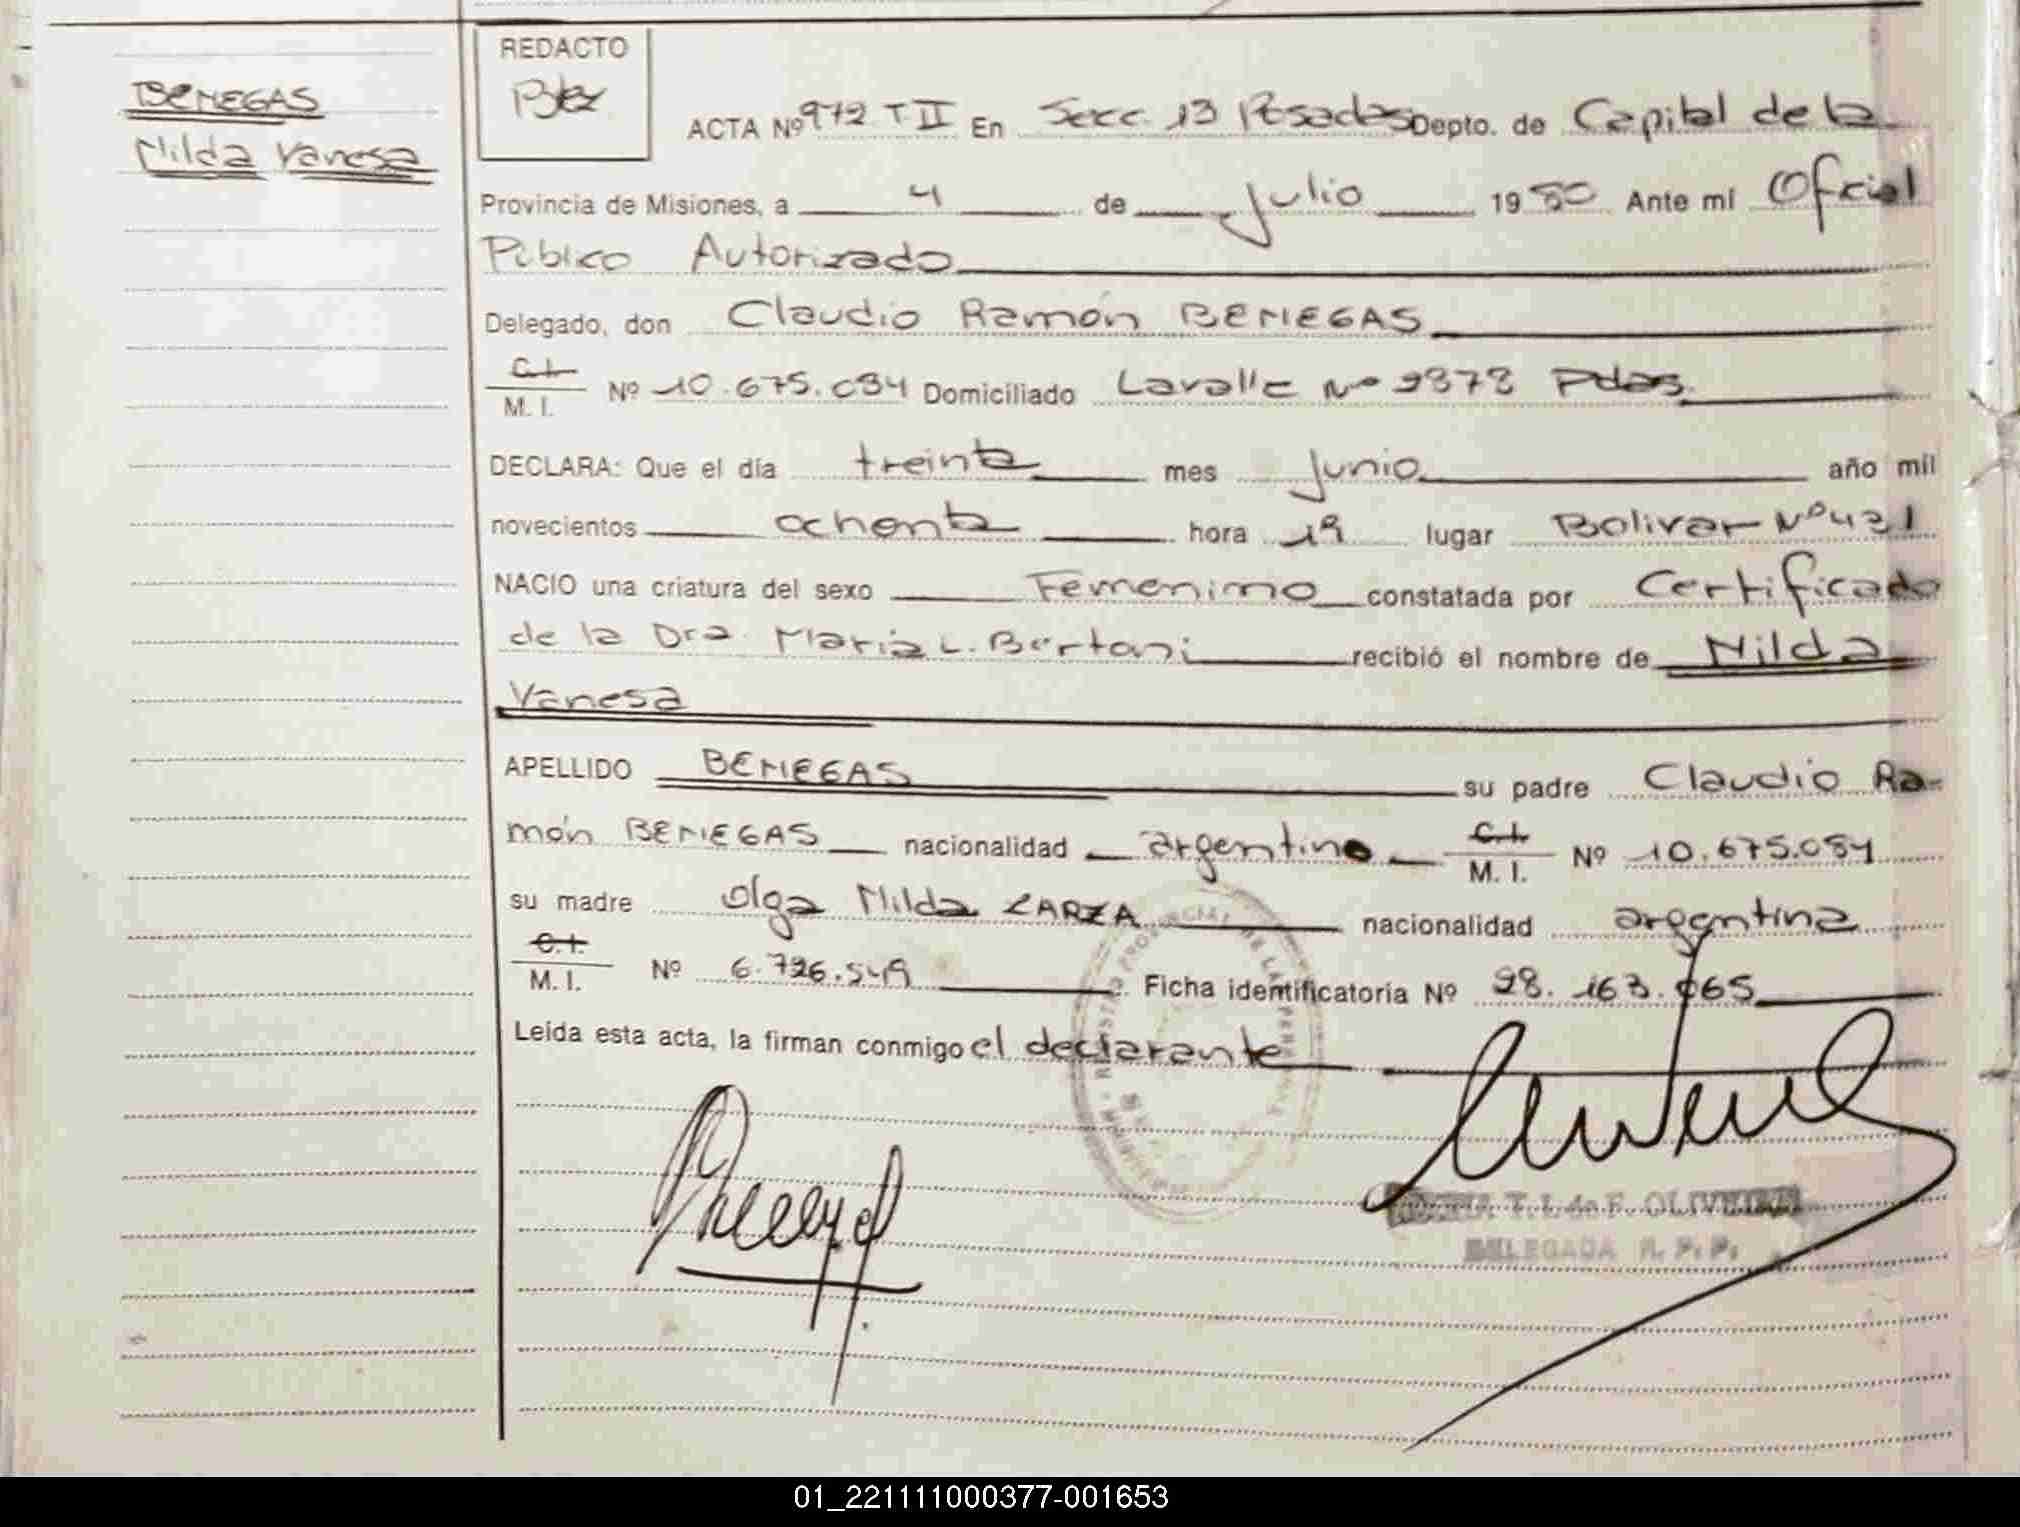 BENEGAS
Nilda Vanesa
REDACTO
ACTA Nº 972 T II En Secc. 13 Posadas Depto. de Capital de la
Provincia de Misiones, a 4 de Julio 1980 Ante mí Oficial
Público Autorizado
Delegado, don Claudio Ramón BENEGAS
C.I.
M. I. Nº 10.675.084 Domiciliado Lavalle Nº 2372 Pdas.
DECLARA: Que el día treinta mes Junio año mil
novecientos ochenta hora 19 lugar Bolivar Nº 421
NACIO una criatura del sexo Femenino constatada por Certificado
de la Dra. Maria L. Bertoni recibió el nombre de Nilda
Vanesa
APELLIDO BENEGAS su padre Claudio Ra-
món BENEGAS nacionalidad argentino C.I.
M. I. Nº 10.675.084
su madre Olga Nilda ZARZA nacionalidad argentina
C.I.
M. I. Nº 6.726.549 Ficha identificatoria Nº 28.163.065
Leída esta acta, la firman conmigo el declarante
T. L. de F. OLIVEIRA
DELEGADA R. P. P.
01_221111000377-001653